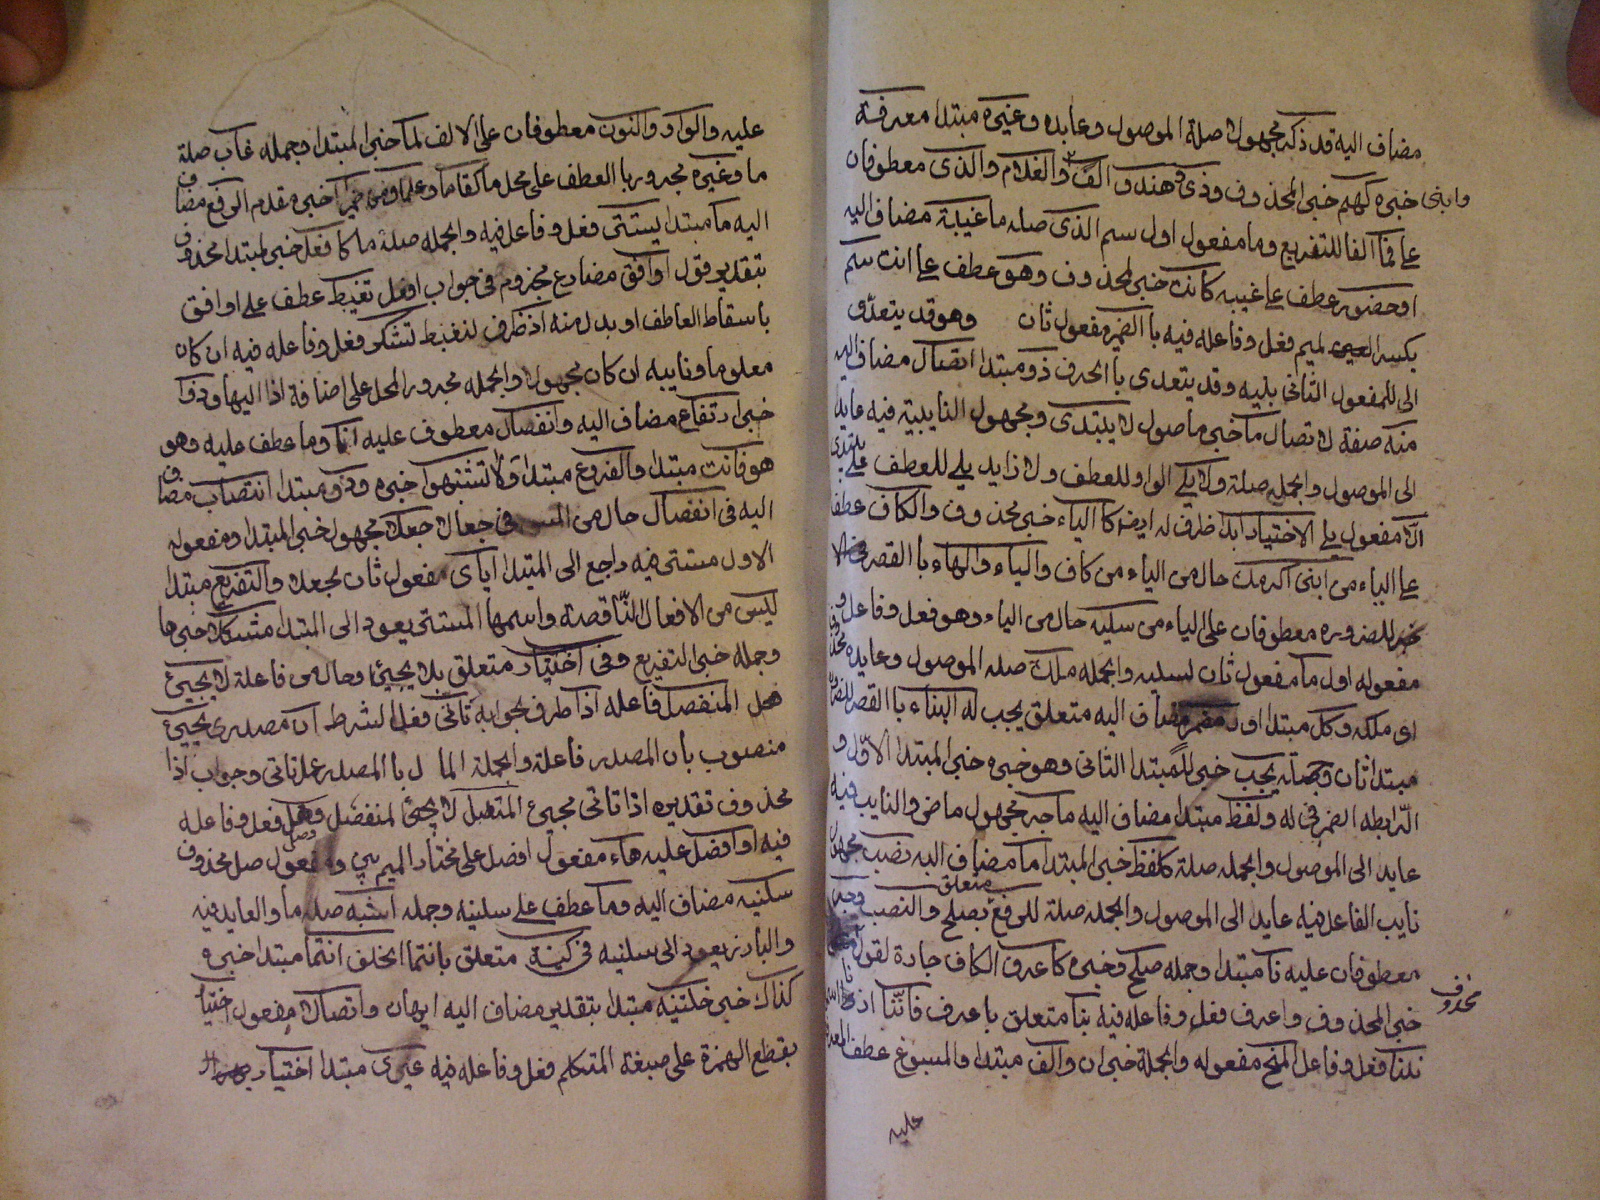 مضاف اليه قد ذكر مجهول صلة الموصول وعايده وغيره مبتدا معرفة
وابنى خبره كهم خبر المحذوف وذى وهند والف والغلام والذى معطوفان
على فما الفا للتفريع وما مفعول اول سم الذى صله ما غيبة مضاف اليه
او حضور عطف على غيبه كانت خبر لمحذوف وهو عطف على انت سم
بكسر الميم فعل وفاعله فيه بالضمير مفعول ثان وهو قد يتعدى
الى المفعول الثانى بليه وقد يتعدى با الحرف ذو مبتدا اتصال مضاف اليه
منه صفة لاتصال ما خبر ما صول لا يبتدى ومجهول النايبية فيه عايد
الى الموصول والجمله صلة ولا يلى الواو للعطف ولا زايد يلى للعطف على يبتدى
الا مفعول يلى الاختيار ابدا ظرف له ايضا كا الياء خبر محذوف والكاف عطف
على الياء من ابنى اكرمك حال من الياء من كاف والياء والهاء با القصر
للضروره معطوفان على الياء من سليه حال من الياء وهو فعل وفاعل و
مفعوله اول ما مفعول ثان لسليه والجمله ملك صله الموصول وعايده محذوف
اى ملكه وكل مبتدا اول مضمر مضاف اليه متعلق يجب له البناء با القصر
مبتدا ثان وجملة يجب خبر للمبتدا الثانى وهو خبره خبر المبتدا الاول و
الرابطه الضمير فى له ولفظ مبتدا مضاف اليه ما جر مجهول ماض والنايب فيه
عايد الى الموصول والجمله صلة كلفظ خبر المبتدا ما مضاف اليه نصب مجهول
نايب الفاعل فيه عايد الى الموصول والجمله صلة للرفع متعلق بصلح والنصب وجر
معطوفان عليه نا مبتدا وجمله صلح وخبره كا عرف الكاف جارة لقول
محذوف
خبر المحذوف واعرف فعل وفاعله فيه بنا متعلق با عرف فاننا
نلنا فعل وفاعل المنح مفعوله والجملة خبر ان والف مبتدا والمسوغ عطف
عليه
عليه والواو والنون معطوفان على الالف لما خبر المبتدا وجمله غاب صلة
ما وغيره مجرور با العطف على محل ما كقاما وعلما ومن ضمير خبر مقدم الرفع مضاف
اليه ما مبتدا يستتر فعل وفاعل فيه والجمله صلة ما كا فعل خبر لمبتدا محذوف
بتقدير قول اوافق مضارع مجزوم فى جواب افعل نغتبط عطف على اوافق
با سقاط العاطف او بدل منه اذ ظرف لنغتبط تشكر فعل وفاعله فيه ان كان
معلوما ونايبه ان كان مجهولا والجمله مجرور المحل على اضافة اذا اليها وذو
خبر ارتفاع مضاف اليه وانفصال معطوف عليه انا وما عطف عليه وهو
هو وانت مبتدا والفروع مبتدا ولا تشتبهوا خبره وذو مبتدا انتصاب مضاف
اليه فى انفصال حال من فى جعلا جعلا مجهول خبر المبتدا ومفعوله
الاول مستتر فيه راجع الى المبتدا اياى مفعول ثان لجعلا والتفريع مبتدا
ليس من الافعال الناقصة واسمها المستتر يعود الى المبتدا مشكلا خبرها
وجمله خبر التفريع وفى اختيار متعلق بلا يجيئ وحال من فاعلة لا يجيئ
المنفصل فاعله اذا ظرف بجوابه تاتى فعل الشرط ان مصدرى يجيئ
منصوب بان المصدر فاعلة والجملة با المصدر على تاتى وجواب اذا
محذوف تقديره اذا تاتى مجيئ المتصل لا يجيئ المنفصل وصل فعل وفاعله
فيه او افصل عليه هاء مفعول افصل على مختار الميم ومفعول صل محذوف
سلنيه مضاف اليه وما عطف على سلنيه وجمله اشبه صله ما والعايد فيه
والبارز يعود الى سلنيه فى كنته متعلق بانتما الخلف انتما مبتدا خبره
كذاك خبر خلتنيه مبتدا بتقدير مضاف اليه ايهان واتصالا مفعول اختيا
بقطع الهمزة على صيغة المتكلم فعل وفاعله فيه غيرى مبتدا اختيار